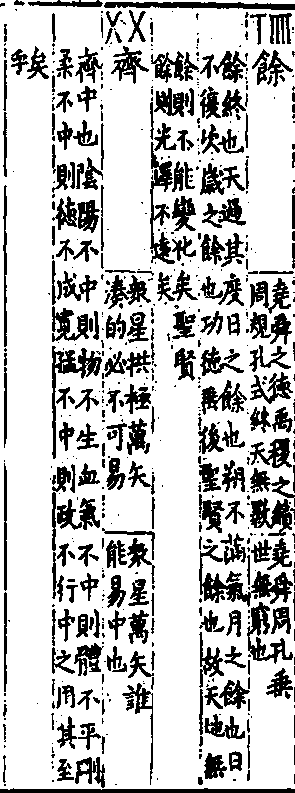 餘
堯舜之德禹稷之績
周規孔式終天無斁
堯舜周孔垂
世無窮也
餘終也天過其度日之餘也朔不滿氣月之餘也日
不復次歲之餘也功德垂後聖賢之餘也故天地無
餘則不能變化矣聖賢
餘則光澤不遠矣
齊
衆星拱極萬矢
湊的必不可易
衆星萬矢誰
能易中也
齊中也陰陽不中則物不生血氣不中則體不平剛
柔不中則德不成寬猛不中則政不行中之用其至
矣
乎